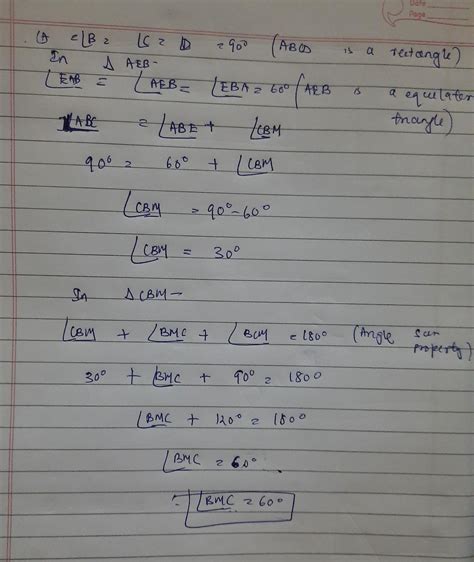 Date
Page
∠A = ∠B = ∠C = D = 90° (ABCD is a rectangle)
In Δ AEB-
∠EAB = ∠AEB = ∠EBA = 60° (AEB is a equilater
triangle)
∠ABC = ∠ABE + ∠CBM
90° = 60° + ∠CBM
∠CBM = 90° - 60°
∠CBM = 30°
In ΔCBM -
∠CBM + ∠BMC + ∠BCM = 180° (Angle sum
property)
30° + ∠BMC + 90° = 180°
∠BMC + 120° = 180°
∠BMC = 60°
∴ ∠BMC = 60°